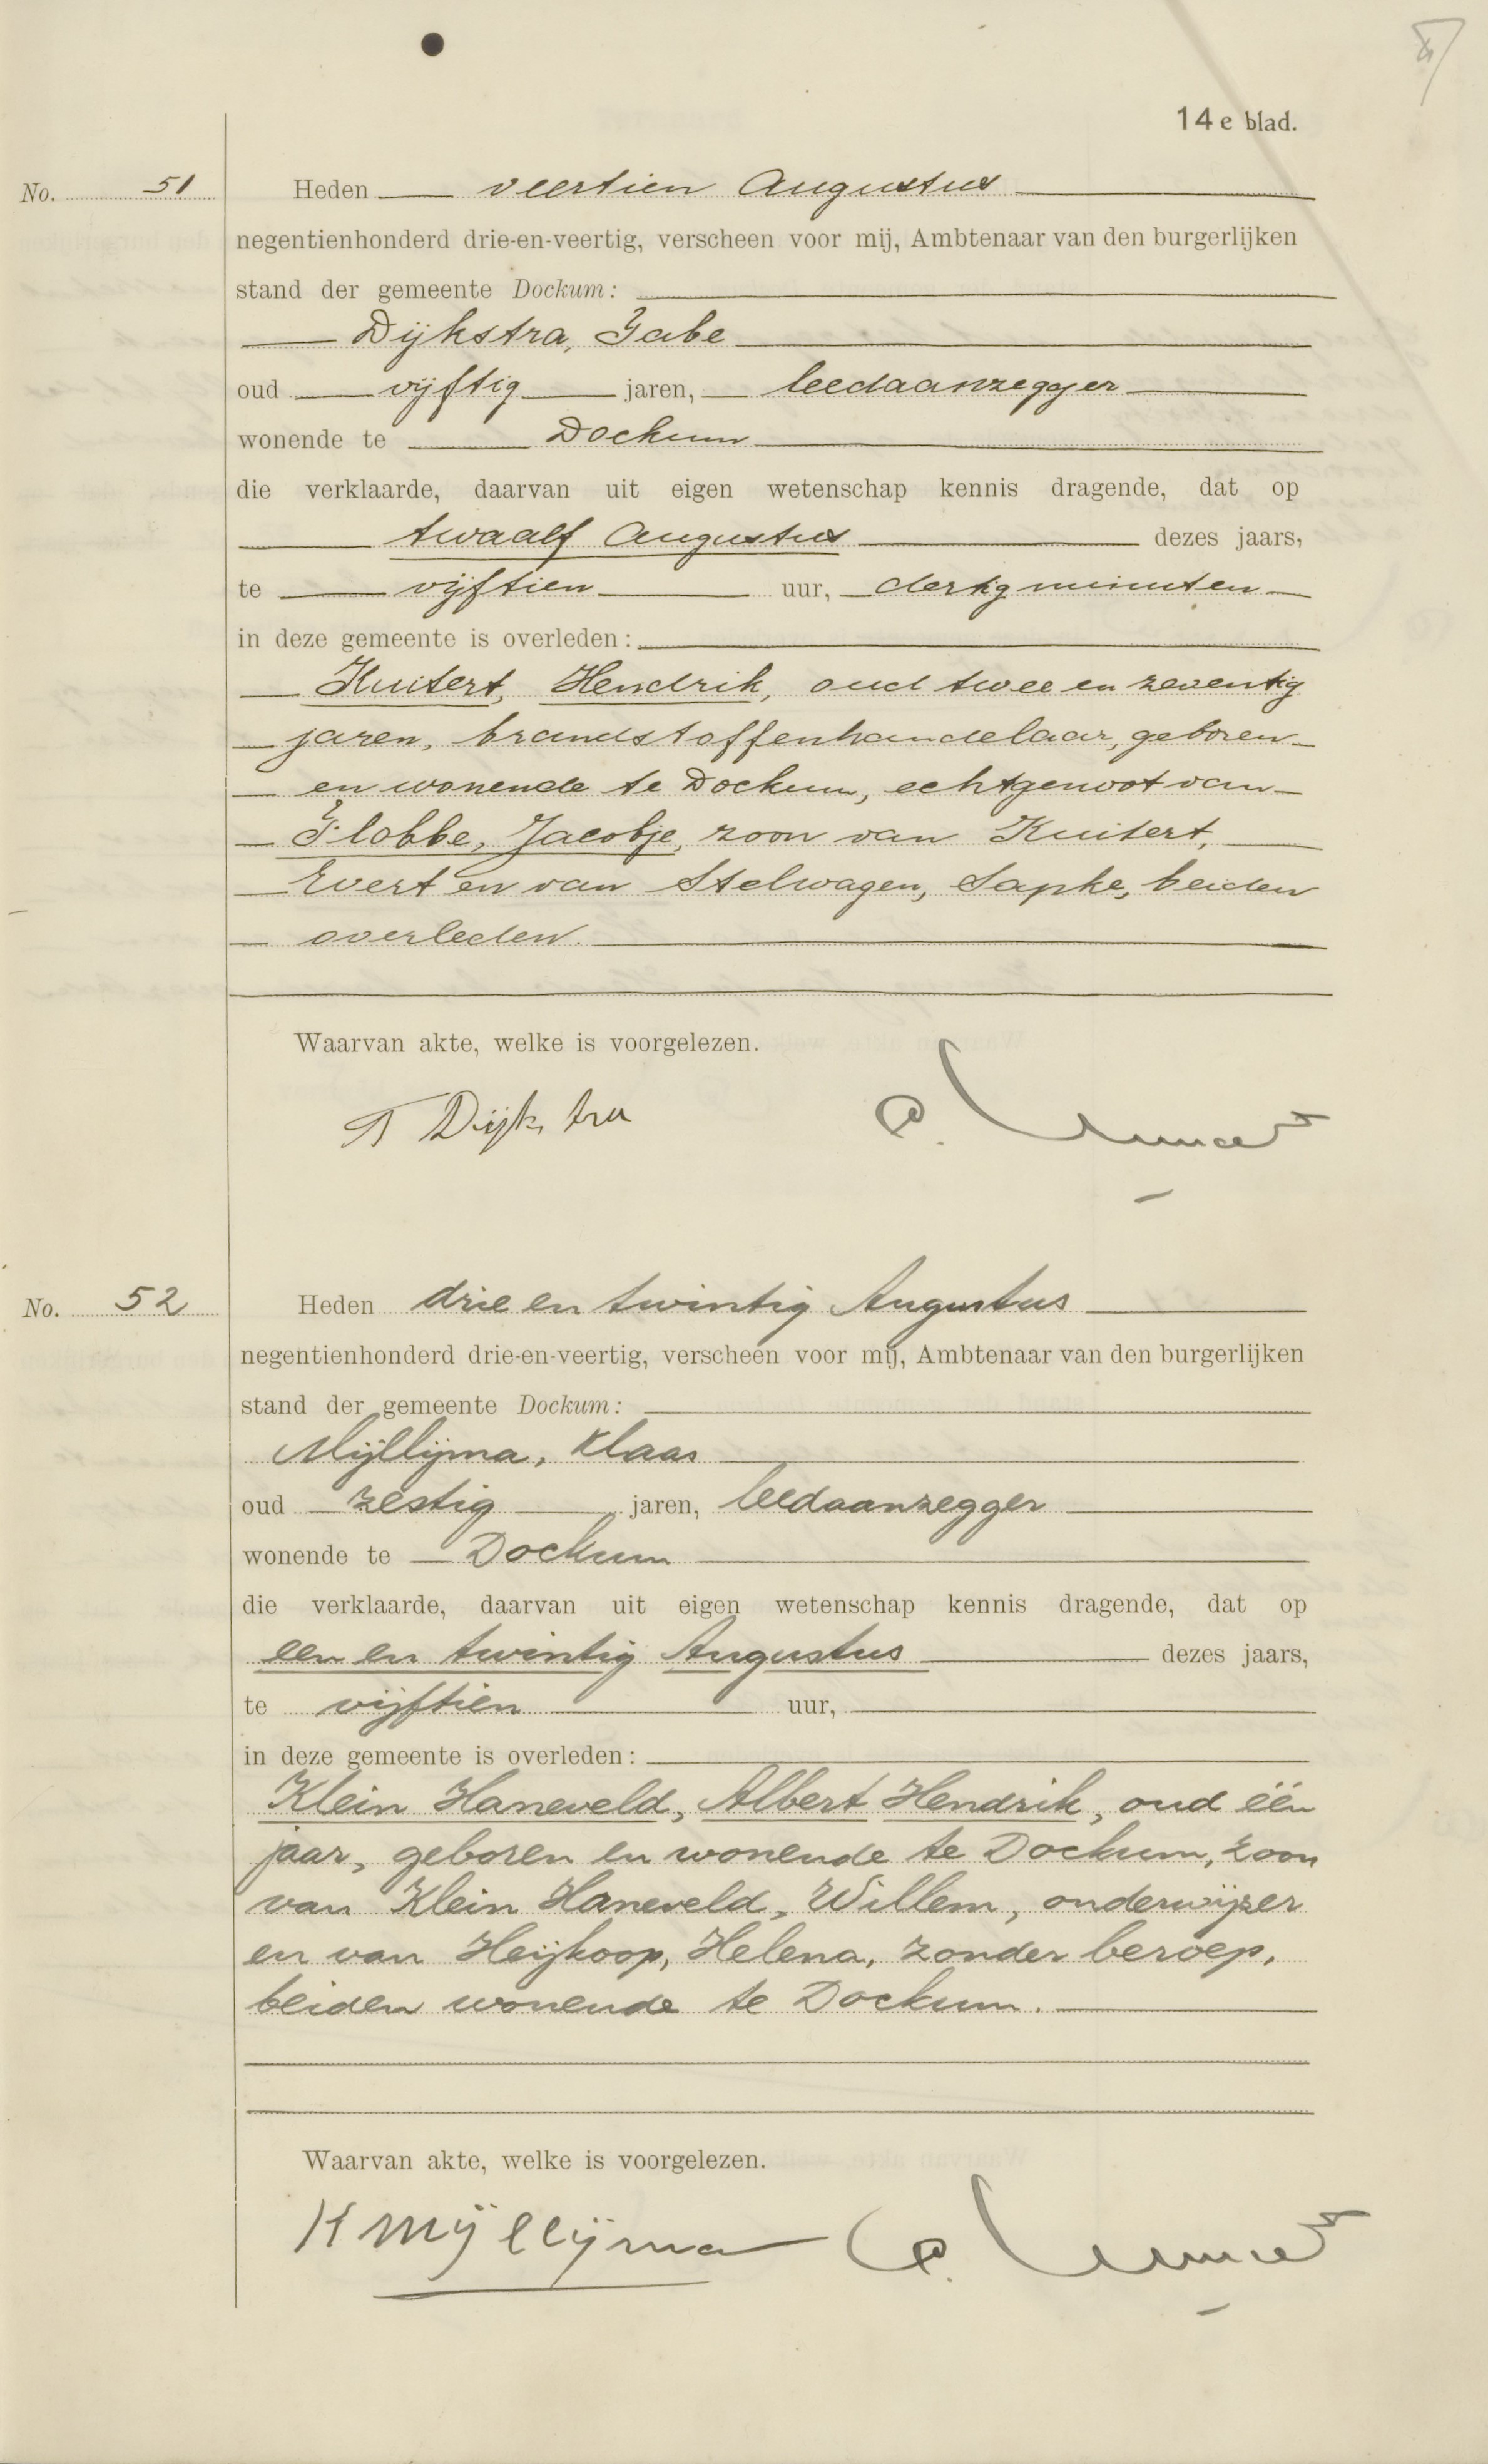 14 e blad.
No. 51
Heden veertien Augustus
negentienhonderd drie-en-veertig, verscheen voor mij, Ambtenaar van den burgerlijken
stand der gemeente Dockum:
Dijkstra,
oud vijftig jaren, leedaanzegger
wonende te Dockum
die verklaarde, daarvan uit eigen wetenschap kennis dragende, dat op
twaalf Augustus dezes jaars,
te vijftien uur, dertig minuten
in deze gemeente is overleden:
Kuitert, Hendrik, oud twee en zeventig
jaren, brandstoffenhandelaar, geboren
en wonende te Dockum, echtgenoot van
Jacobje, zoon van Kuitert,
Evert en van Stelwagen, Sapke, beiden
overleden.
Waarvan akte, welke is voorgelezen.
Dijkstra
No. 52
Heden drie en twintig Augustus
negentienhonderd drie-en-veertig, verscheen voor mij, Ambtenaar van den burgerlijken
stand der gemeente Dockum:
Mijllijma, Klaas
oud zestig jaren, leedaanzegger
wonende te Dockum
die verklaarde, daarvan uit eigen wetenschap kennis dragende, dat op
een en twintig Augustus dezes jaars,
te vijftien uur,
in deze gemeente is overleden:
Klein Haneveld, Albert Hendrik, oud één
jaar, geboren en wonende te Dockum, zoon
van Klein Haneveld, Willem, onderwijzer
en van Heijkoop, Helena, zonder beroep,
beiden wonende te Dockum.
Waarvan akte, welke is voorgelezen.
K Mijllijma